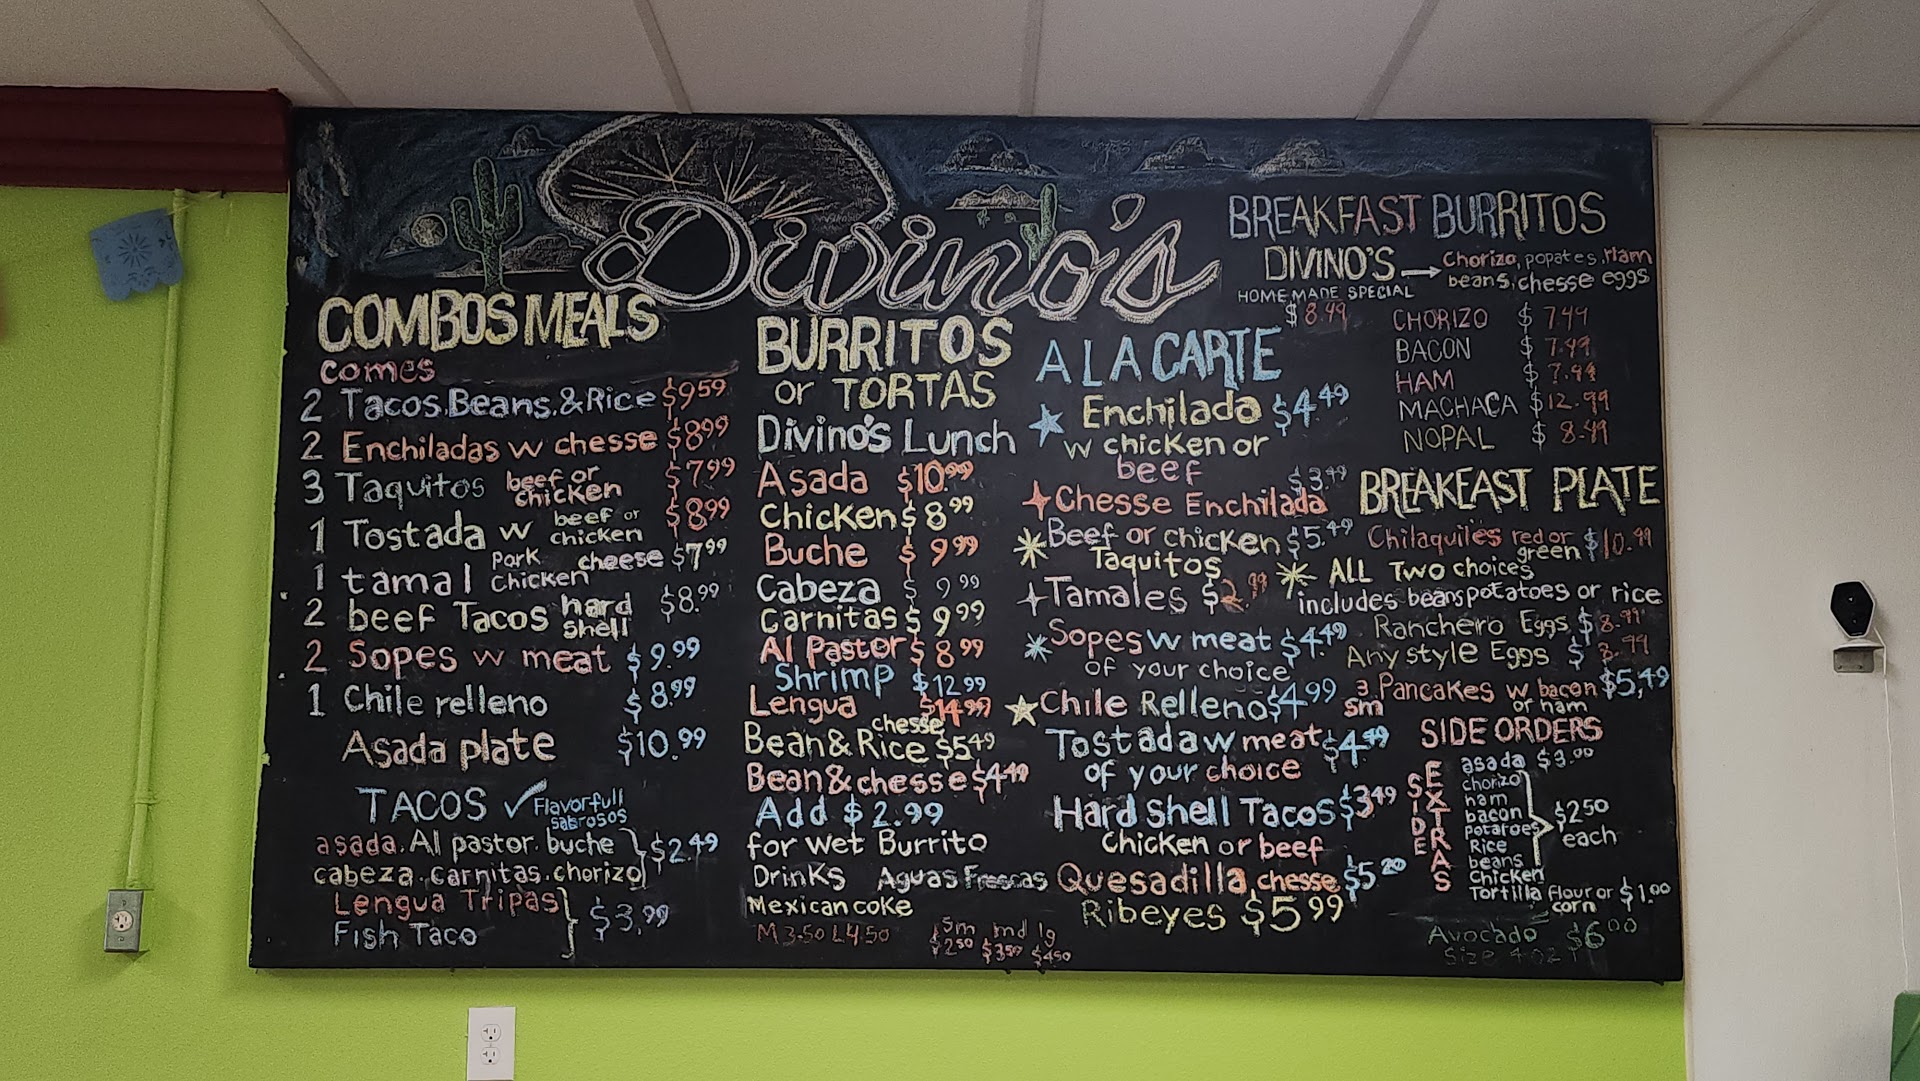 Divino's
COMBOS MEALS
comes
2 Tacos, Beans, & Rice $9.59
2 Enchiladas w chesse $8.99
3 Taquitos beef or chicken $7.99
1 Tostada w beef or chicken $8.99
1 tamal Pork Chicken cheese $7.99
2 beef Tacos hard shell $8.99
2 Sopes w meat $9.99
1 Chile relleno $8.99
Asada plate $10.99
TACOS ✓ Flavorfull sabrosos
asada. Al pastor. buche
cabeza. carnitas. chorizo } $2.49
Lengua Tripas
Fish Taco } $3.99
BURRITOS
or TORTAS
Divino's Lunch
Asada $10.99
Chicken $8.99
Buche $9.99
Cabeza $9.99
Carnitas $9.99
Al Pastor $8.99
Shrimp $12.99
Lengua $14.99
Bean & Rice chesse $5.49
Bean & chesse $4.49
Add $2.99
for wet Burrito
Drinks Aguas Frescas
Mexican coke
M 3.50 L 4.50
sm md lg
$2.50 $3.50 $4.50
A LA CARTE
Enchilada $4.49
w chicken or
beef
$3.49
Chesse Enchilada
Beef or chicken $5.49
Taquitos
Tamales $2.99
Sopes w meat $4.49
of your choice
Chile Relleno $4.99
Tostada w meat $4.49
of your choice
Hard Shell Tacos $3.49
Chicken or beef
Quesadilla, chesse $5.20
Ribeyes $5.99
BREAKFAST BURRITOS
DIVINO'S → Chorizo, popates, Ham
beans, chesse eggs
HOME MADE SPECIAL
$8.49
CHORIZO $7.49
BACON $7.49
HAM $7.49
MACHACA $12.99
NOPAL $8.49
BREAKFAST PLATE
Chilaquiles red or green $10.99
ALL Two choices
includes beans potatoes or rice
Ranchero Eggs $8.99
Any style Eggs $8.99
3 sm Pancakes w bacon or ham $5.49
SIDE ORDERS
SIDE EXTRAS
asada $3.00
chorizo
ham
bacon
potatoes
Rice
beans
Chicken
$2.50 each
Tortilla flour or corn $1.00
Avocado $6.00
Size 4 oz